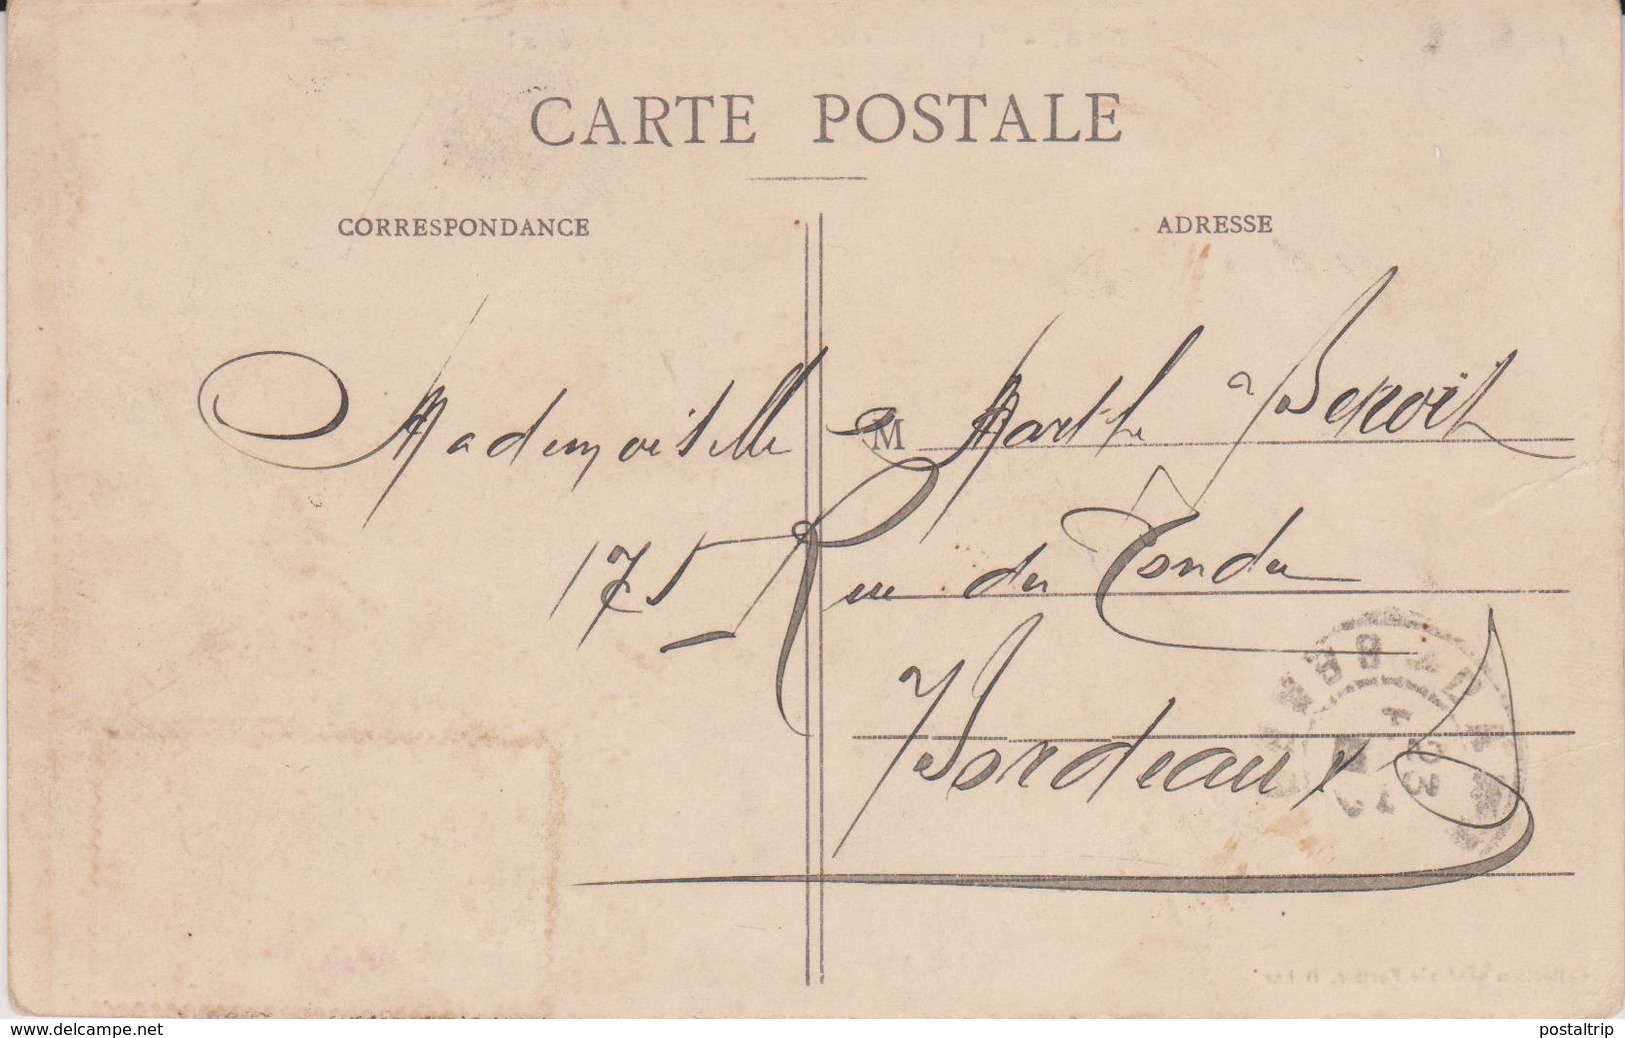 CARTE POSTALE
CORRESPONDANCE
ADRESSE
Mademoiselle M Marthe Benoit
175 Rue du Tondu
Bordeaux
www.delcampe.net
postaltrip